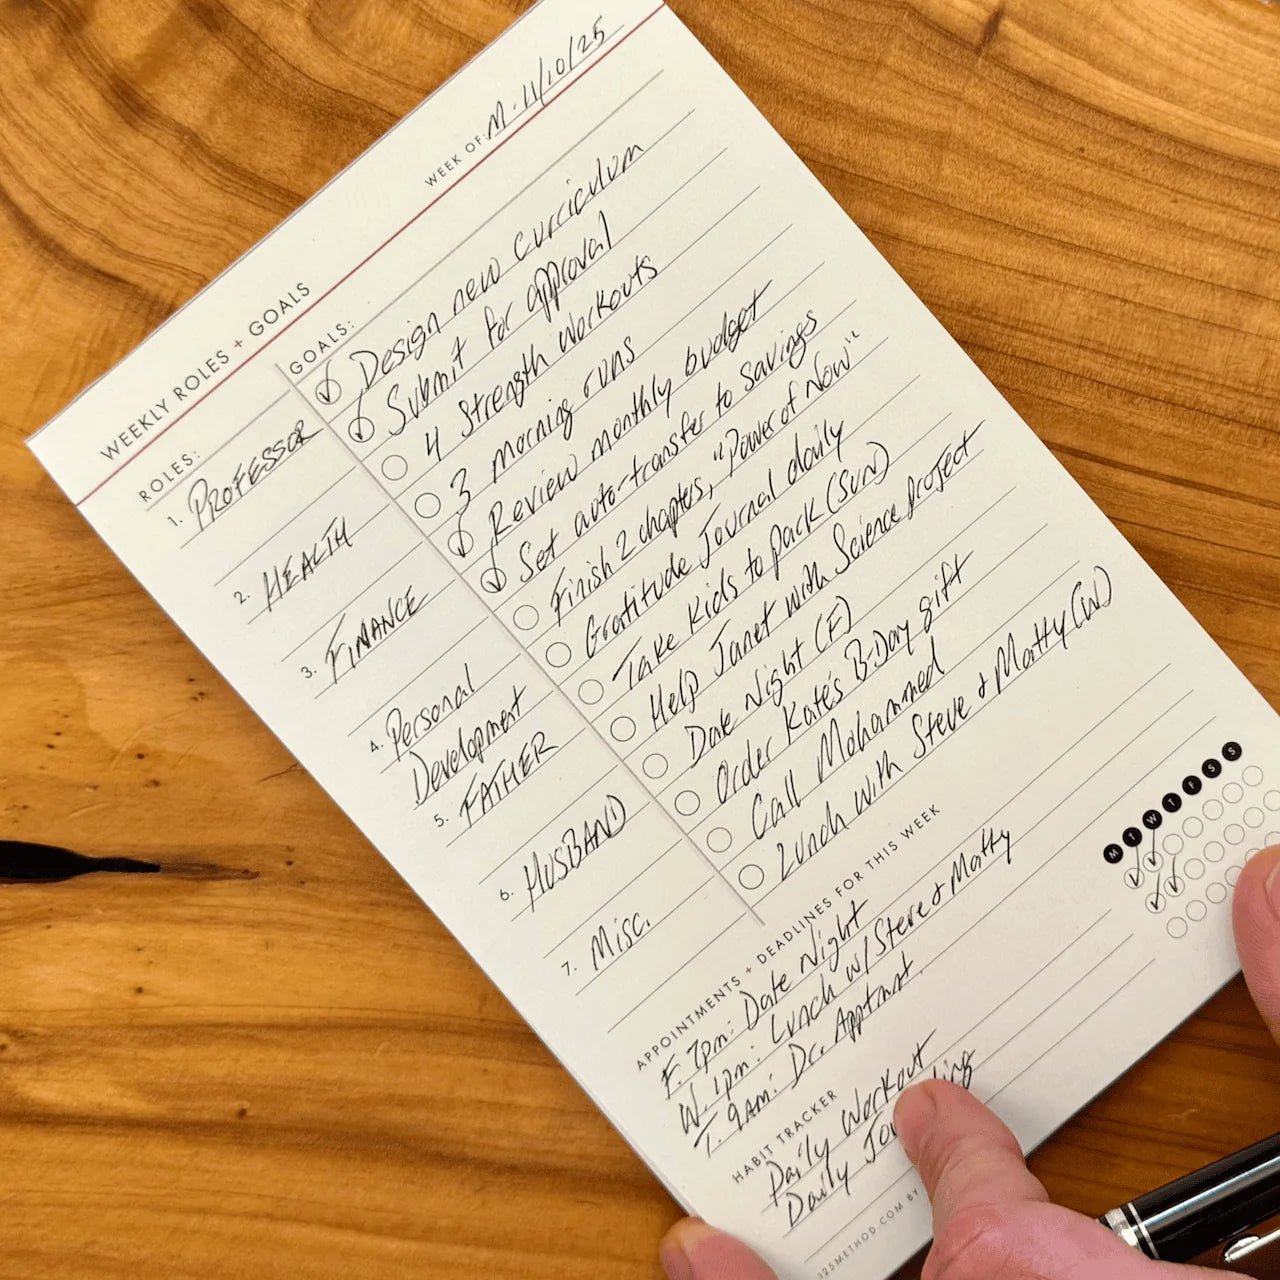 WEEK OF: M. 11/10/25
WEEKLY ROLES + GOALS
ROLES:
1. PROFESSOR
2. HEALTH
3. FINANCE
4. Personal
Development
5. FATHER
6. HUSBAND
7. Misc.
GOALS:
Design new curriculum
Submit for approval
4 Strength workouts
3 morning runs
Review monthly budget
Set auto-transfer to savings
Finish 2 chapters, "Power of Now"
Gratitude Journal daily
Take Kids to park (Sun)
Help Janet with Science project
Date Night (F)
Order Kate's B-Day gift
Call Mohammed
Lunch with Steve & Matty (W)
APPOINTMENTS + DEADLINES FOR THIS WEEK
F. 7pm: Date Night
W. 1pm: Lunch w/ Steve & Matty
T. 9AM: Dr. Apptmt.
HABIT TRACKER
M T W T F S S
Daily Workout
Daily
125METHOD.COM BY